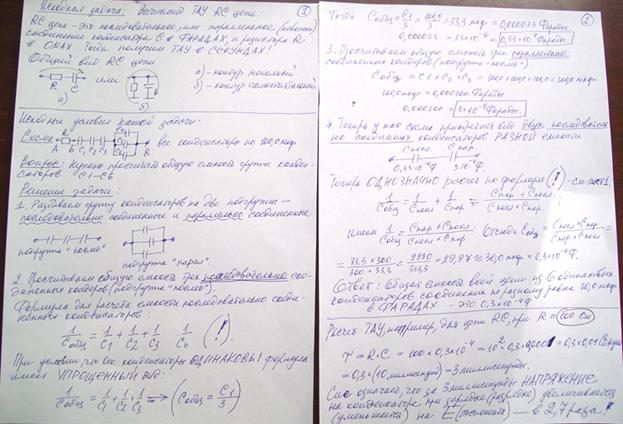 Исходная задача: Вычислить ТАУ RC цепи:
RC цепь - это последовательное или параллельное
соединение конденсатора С в ФАРАДАХ, и резистора R
в ОМАХ тогда получим ТАУ в СЕКУНДАХ!
Общий вид RC цепи
R C или C R
а) б)
а) - контур неполный
б) - контур
Исходные условия нашей задачи:
Схема: A R B C1 C2 C3 C4 C5 C6 все конденсаторы по 100,0 мкф
Вопрос: Нужно просчитать общую емкость группы конден-
саторов C1-C6.
Решение задачи:
1. Разбиваем группу конденсаторов на две подгруппы -
последовательно соединенные и параллельно соединенные
подгруппа "послед" подгруппа "парал".
2. Просчитываем общую емкость трех последовательно сое-
диненных кондеров (подгруппа "послед").
Формула для расчета емкости последовательно соеди-
ненных конденсаторов:
1/Cобщ = 1/C1 + 1/C2 + 1/C3 1/Cn (!).
При условии, что все конденсаторы ОДИНАКОВЫ формула
имеет УПРОЩЕННЫЙ вид:
1/Cобщ = 1/C1 + 1/C2 + 1/C3 => (Cобщ = C1/3)
2
Тогда Cобщ = C1/3 = 100,0/3 = 33,3 мкф = 0,000033 Фарады
0,000033 = 33×10⁻⁶ = 0,33×10⁻⁴ Фарады.
3. Просчитываем общую емкость трех параллельно
соединенных кондеров (подгруппа "послед").
Cобщ = C1 + C2 + C3 = 100,0 + 100,0 + 100,0 = 300,0 мкф.
мкф = 0,000300 Фарады
0,000300 = 3×10⁻⁴ Фарады.
4. Теперь у нас схема приобретает вид двух последователь
но соединенных конденсаторов РАЗНОЙ емкости
Cпосл. Cпар.
0,33·10⁻⁴Ф 3·10⁻⁴Ф
Теперь ОДНОЗНАЧНО расчет по формуле (!) - см. лист 1.
1/Cобщ = 1/Cпосл + 1/Cпар = Cпар + Cпосл / Cпосл × Cпар
Имеем 1/Cобщ = Cпар + Cпосл / Cпосл × Cпар. Отсюда Cобщ = Cпосл × Cпар / Cпар + Cпосл =
= 33,3 × 300 / 300 + 33,3 = 9990 / 333,3 = 29,97 ≈ 30,0 мкф = 0,3×10⁻⁴Ф.
Ответ: Общая емкость всей цепи из 6 одинаковых
конденсаторов соединения поровну равна 30,0 мкф
в ФАРАДАХ - это 0,3×10⁻⁴Ф
Расчет ТАУ, например, для цепи RC, при R = 100 Ом
τ = R·C = 100 × 0,3×10⁻⁴ = 10² · 0,3 ×
= 0,3 × (10 миллисекунд) = 3 миллисекунды.
Сие означает, что за 3 миллисекунды НАПРЯЖЕНИЕ
на конденсаторе при зарядке (разрядке) увеличивается
(уменьшается) на E - в 2,7 раза!